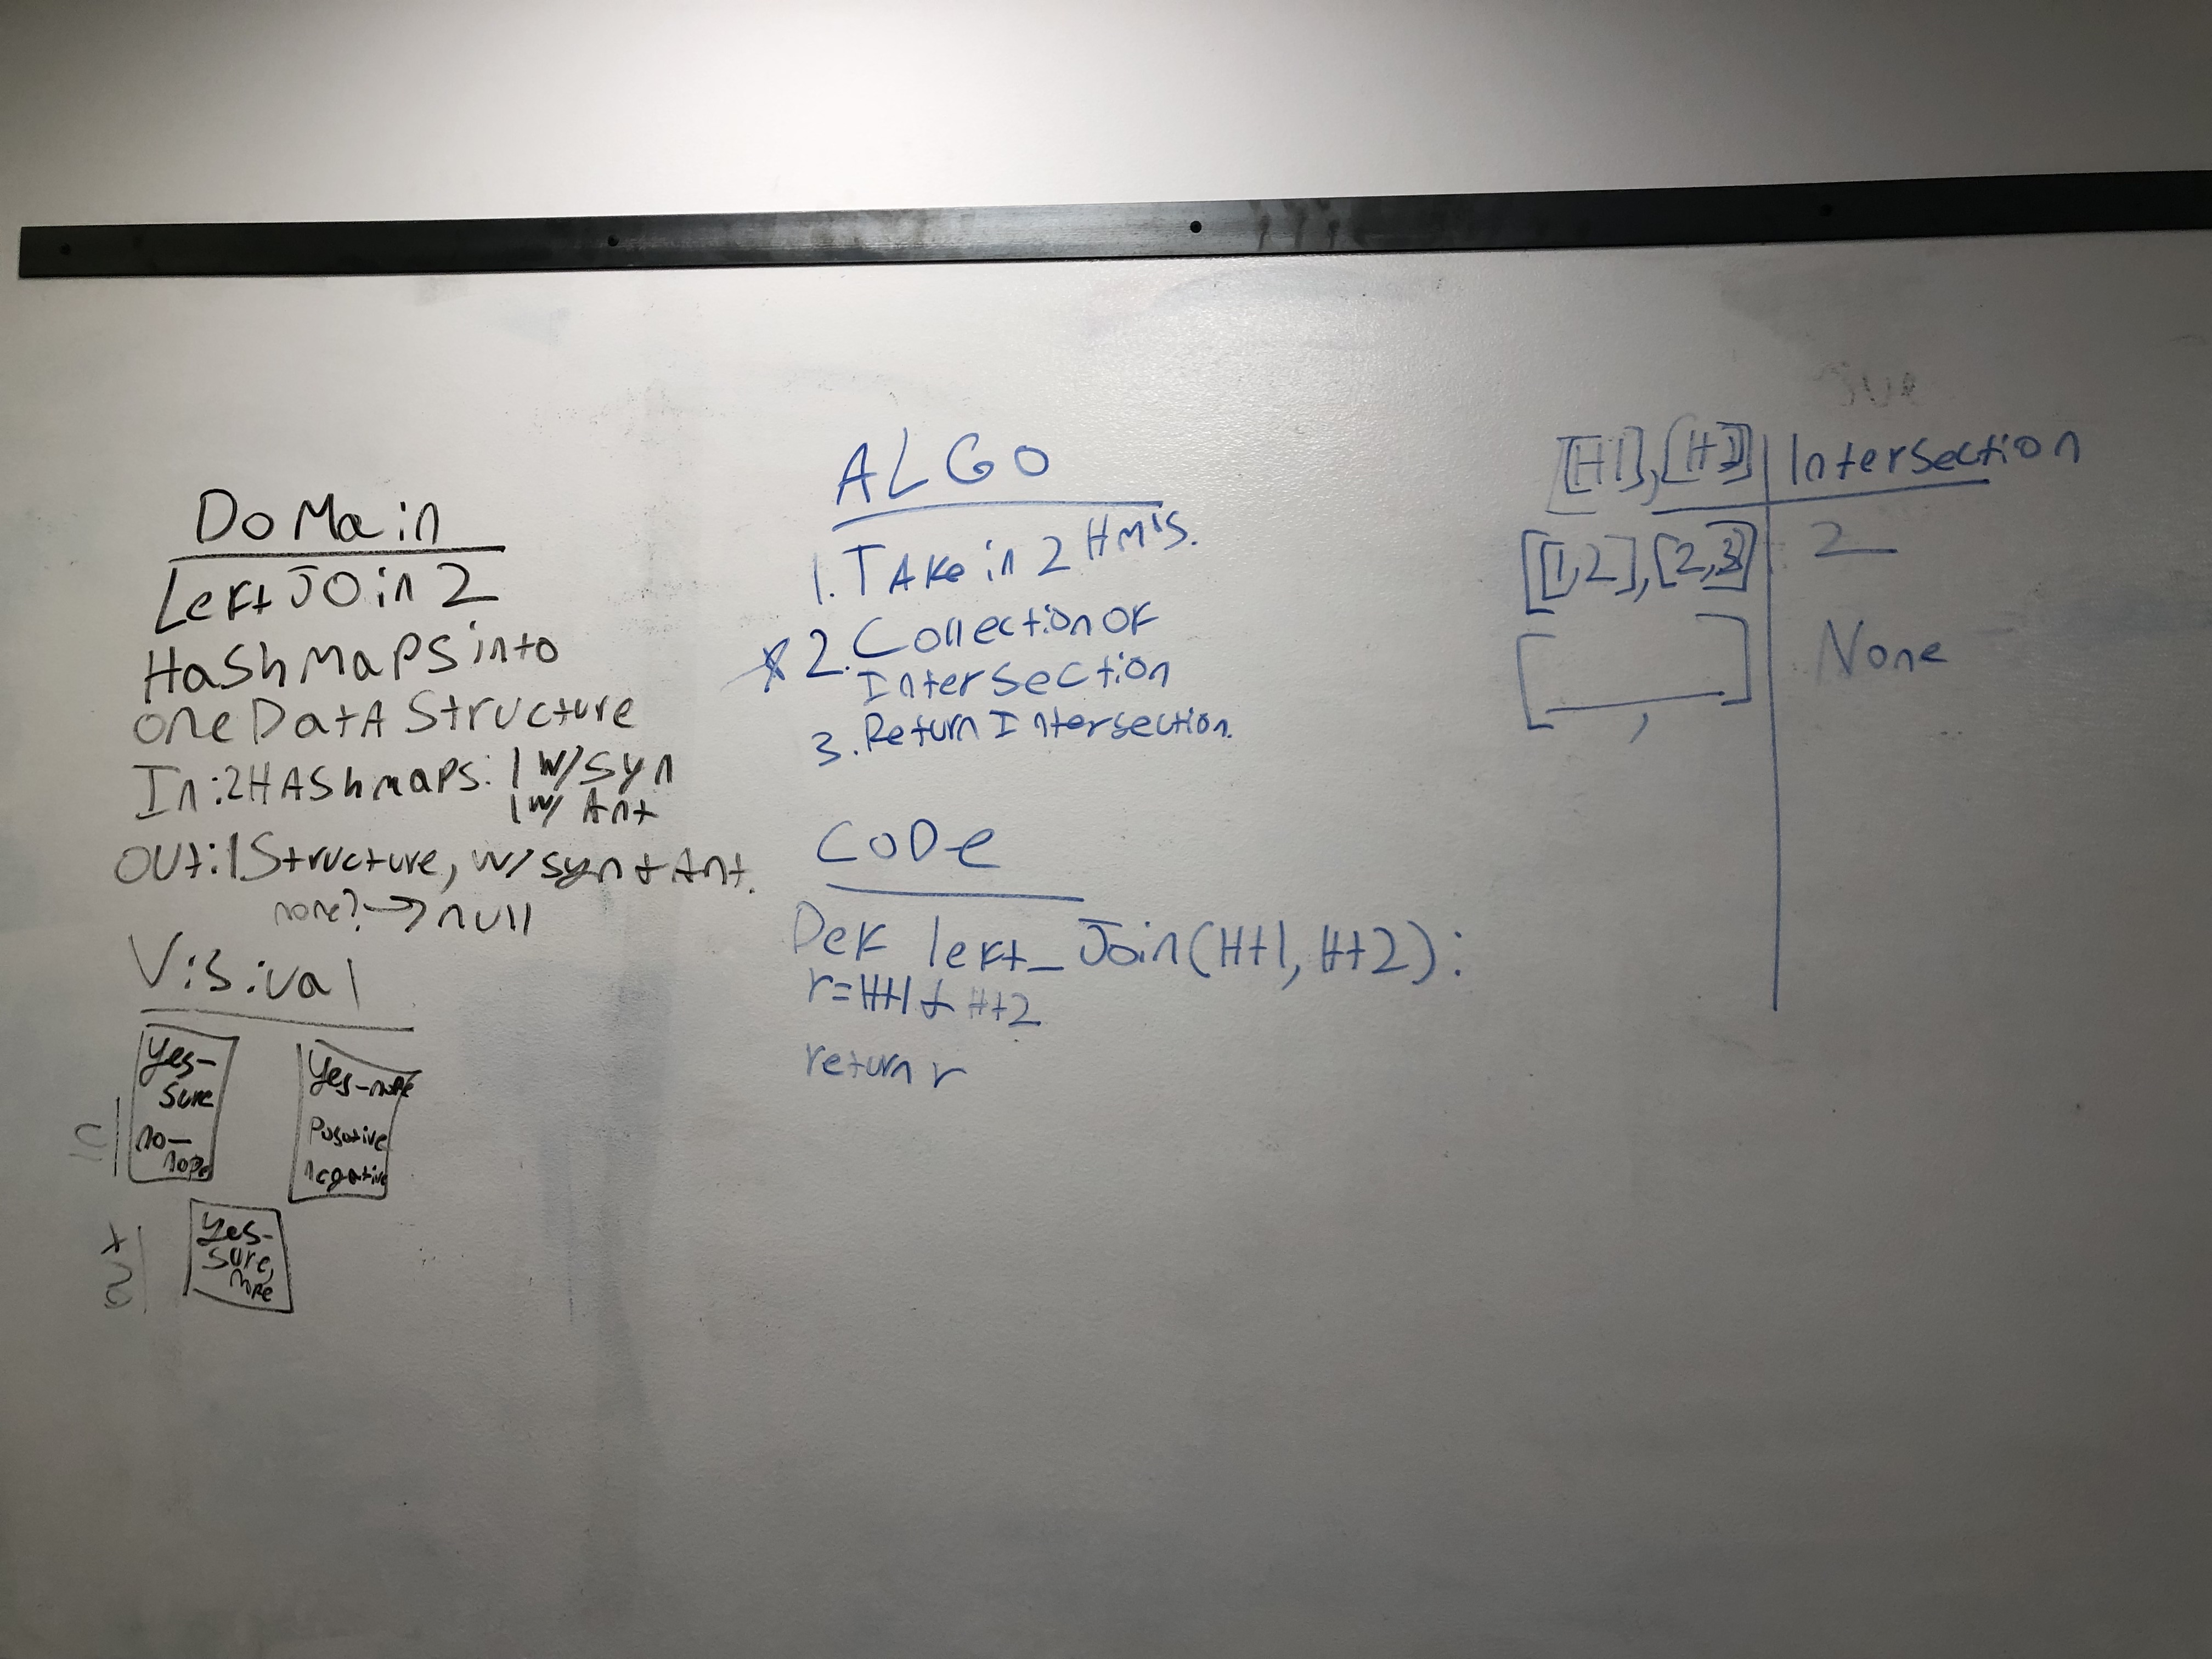 DoMain
Left JOin 2
HaSh MaPS into
one DatA Structure
In: 2 HAShmaps: 1 w/ Syn
1 w/ Ant
OUt: 1 Structure, w/ syn + Ant.
none? → null
Visival
Yes-
sure
no-
nope
Yes-nope
Posotive
negative
In
Yes-
sure,
nope
ALGO
1. TAke in 2 HM's.
* 2. Collection OF
InterSection
3. Return Intersection.
CoDe
Def left_Join(Ht1, Ht2):
r = Ht1 & Ht2
return r
Intersection
[[1,2],[2,3]] 2
[ , ] None